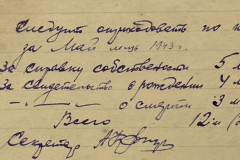 Следует оприходовать по к
за Май месц 1943 г.
за справку собственности 5 м
за свидетельство о рождении 4 м
-„- -„- о смерти 3 м
Всего 12 м
Секретарь